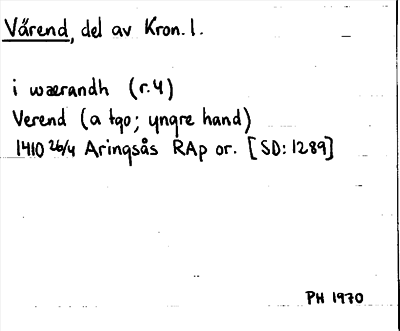 Värend, del av Kron. l.
i wærandh (r. 4)
Verend (a tgo; yngre hand)
1410 26/4 Aringsås RAp or. [SD: 1289]
PH 1970